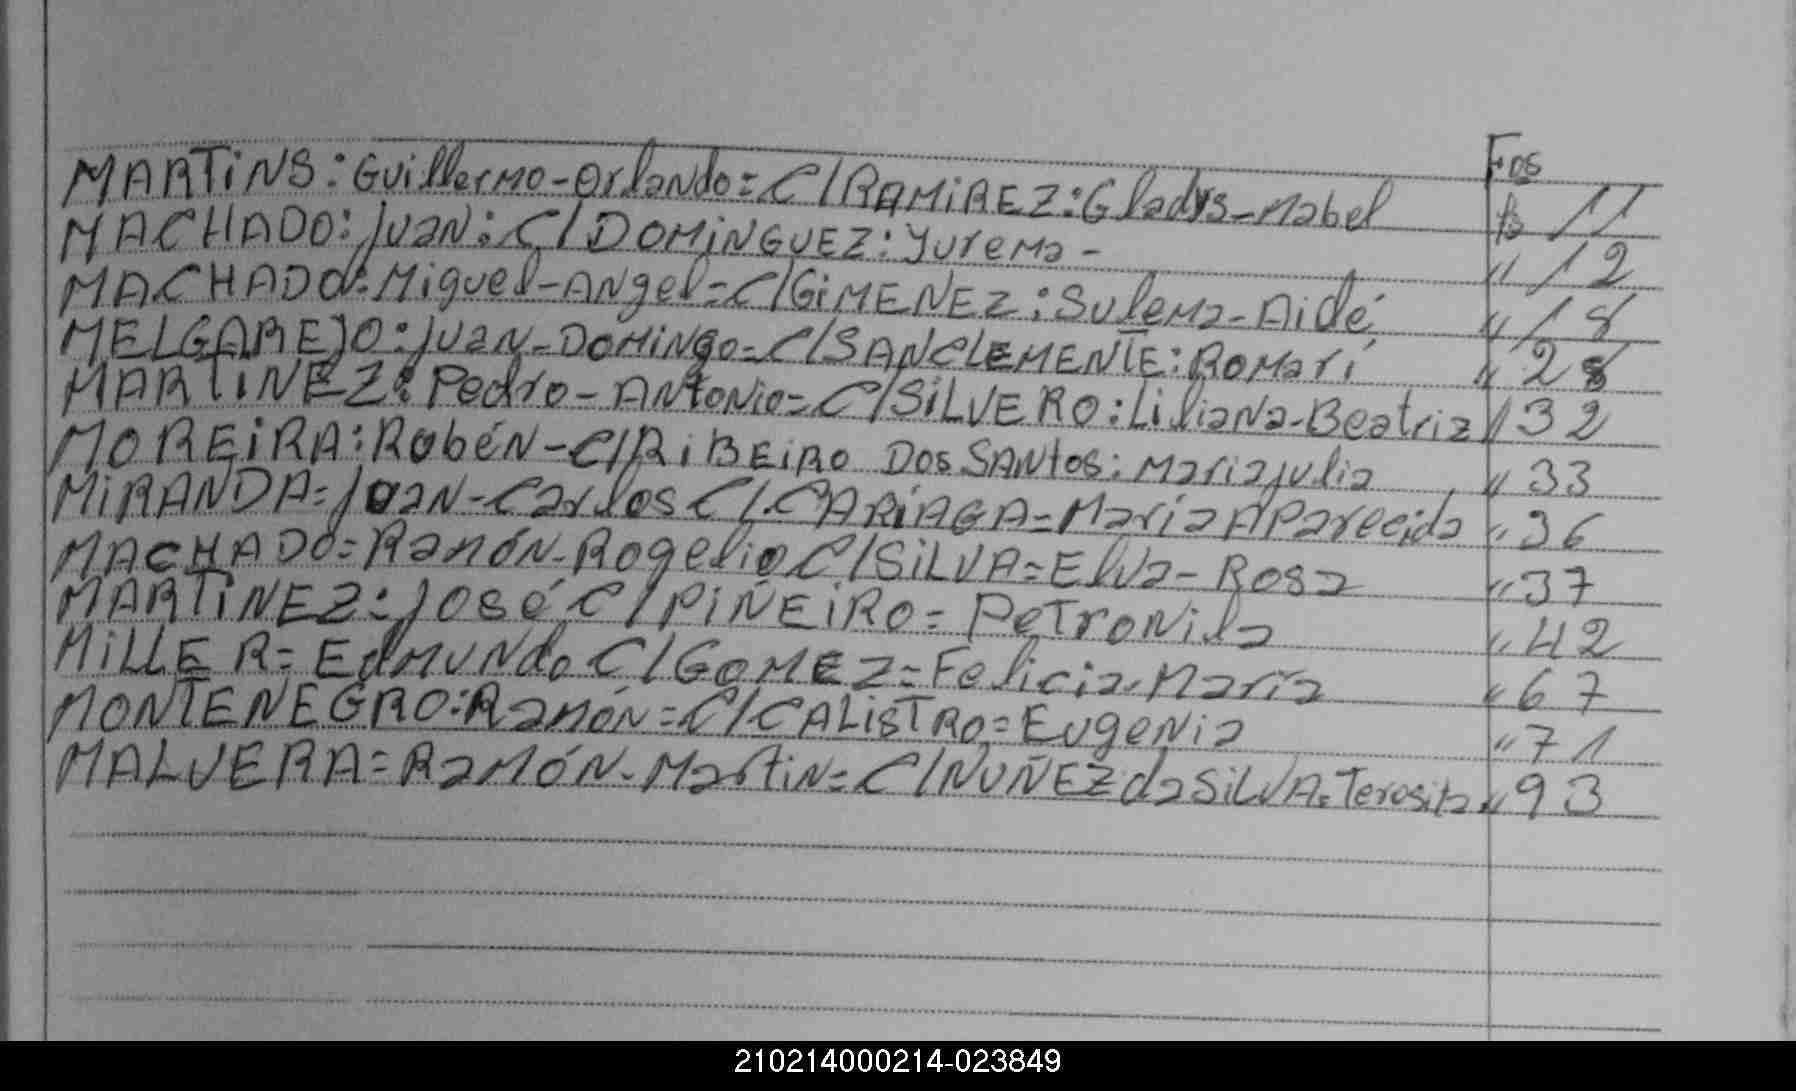 Fos
MARTiNS: Guillermo-Orlando= C/RAMiREZ: Gladys-Mabel fs 11
MACHADO: Juan: C/DOMiNGUEZ: Yurema- " 12
MACHADO: Miguel-Angel= C/GiMENEZ: Sulema-Aidé " 18
MELGAREJO: Juan-Domingo= C/SANCLEMENTE: Romari " 28
MARTiNEZ: Pedro-Antonio= C/SiLVERO: Liliana-Beatriz " 32
MOREiRA: Rubén-C/RiBEiRO DOS SANtos: Maria Julia " 33
MiRANDA= Juan-Carlos C/CARiAGA= María Aparecida " 36
MACHADO= Ramón-Rogelio C/SiLVA= Elva-Rosa " 37
MARTiNEZ: José C/PiÑEiRO= Petronila " 42
MiLLER= Edmundo C/GOMEZ= Felicia-María " 67
MONTENEGRO: Ramón= C/CALiSTRO= Eugenia " 71
MALVERA= Ramón-Martin= C/NUÑEZ da SiLVA= Teresita " 93
210214000214-023849